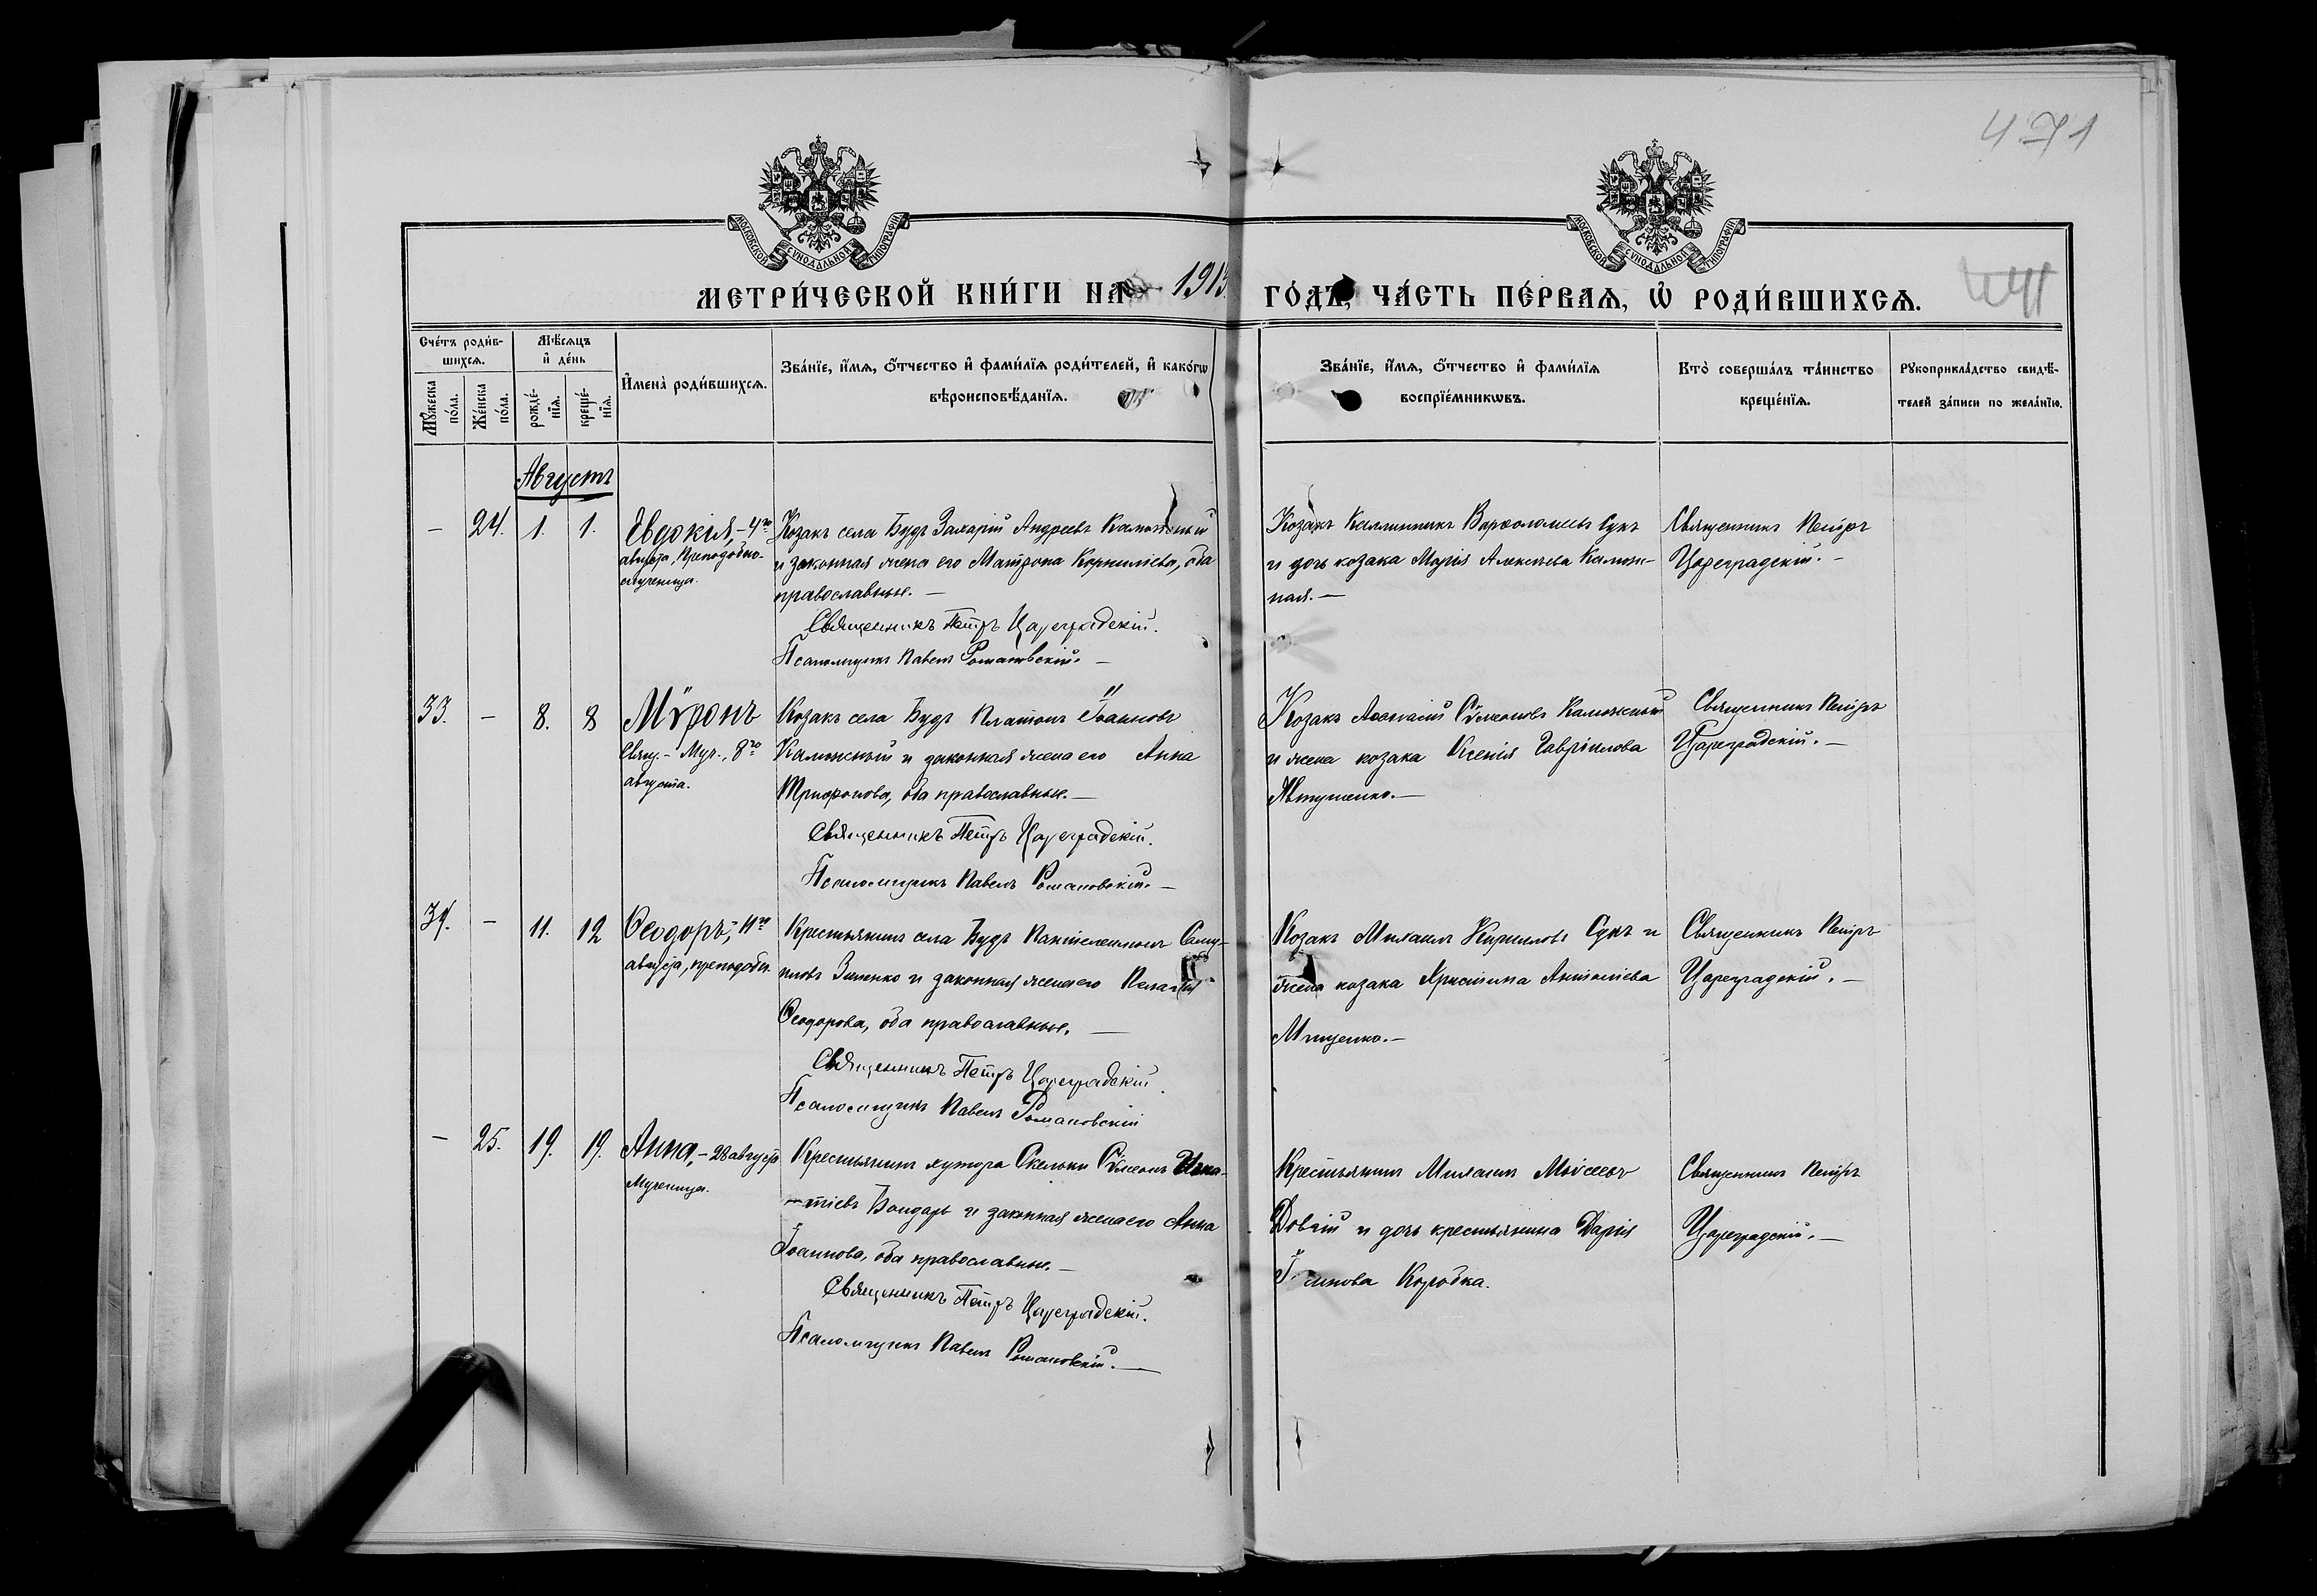 471
МОСКОВСКОЙ СѴНОДАЛЬНОЙ ТИПОГРАФІИ
МОСКОВСКОЙ СѴНОДАЛЬНОЙ ТИПОГРАФІИ
МЕТРИ́ЧЕСКОЙ КНИ́ГИ НА 191
ГО́ДЪ, ЧА́СТЬ ПЕ́РВАѦ, Ѡ҆ РОДИ́ВШИХСѦ.
Сче́тъ роди́в-
шихсѧ.
Мꙋ́жеска по́ла.
Же́нска по́ла.
Мѣ́сѧцъ
и҆ де́нь
рожде́-
нїѧ.
креще́-
нїѧ.
И҆мена̀ роди́вшихсѧ.
Зва́нїе, и҆́мѧ, ѻ҆́тчество и҆ фами́лїѧ роди́телей, и҆ како́гѡ
вѣроисповѣ́данїѧ.
Зва́нїе, и҆́мѧ, ѻ҆́тчество и҆ фами́лїѧ
воспрїе́мникѡвъ.
Кто̀ соверша́лъ та́инство
креще́нїѧ.
Рꙋкоприкла́дство свидѣ́-
телей за́писи по жела́нїю.
Августъ
– 24. 1. 1. Евдокія, – 4го
августа, Преподобно-
мученица.
Козакъ села Будъ Захарій Андреевъ
и законная жена его Матрона Корниліева, оба
православные. –
Священникъ Петръ Цареградскій.
Псаломщикъ Павелъ Романовскій. –
Козакъ Каллиникъ Варѳоломеевъ Сукъ
и дочь козака Марія Алексѣева Калюж-
ная. –
Священникъ Петръ
Цареградскій. –
33. – 8. 8 Мѵронъ
Свящ.- Муч., 8го
августа.
Козакъ села Будъ Платонъ Іоанновъ
Калюжный и законная жена его Анна
Трифонова, оба православные. –
Священникъ Петръ Цареградскій.
Псаломщикъ Павелъ Романовскій. –
Козакъ Аѳанасій Сѵмеоновъ Калюжный
и жена козака Ксенія Гавріилова
Явтушенко. –
Священникъ Петръ
Цареградскій. –
34. – 11. 12 Ѳеодоръ, – 11го
августа, преподобн.
Крестьянинъ села Будъ Пантелеимонъ Саму-
иловъ Зиленко и законная жена его Пелагія
Ѳеодорова, оба православные. –
Священникъ Петръ Цареградскій.
Псаломщикъ Павелъ Романовскій
Козакъ Михаилъ Кирилловъ Сукъ и
жена козака Христина Антоніева
Мищенко. –
Священникъ Петръ
Цареградскій. –
– 25. 19. 19. Анна, – 28 августа
Мученица.
Крестьянинъ хутора Скельки Сѵмеонъ Игна-
тіевъ Бондарь и законная жена его Анна
Іоаннова, оба православные. –
Священникъ Петръ Цареградскій.
Псаломщикъ Павелъ Романовскій. –
Крестьянинъ Михаилъ Моисеевъ
Довгій и дочь крестьянина Дарія
Коробка.
Священникъ Петръ
Цареградскій. –